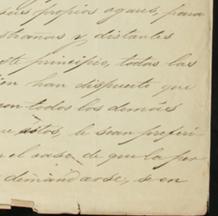 sus propios aguas, para
stranas y distantes
ste principio, todas las
ien han dispuesto que
con todos los demás
ue estos, le sean preferi
n el caso de que la per
demandarse, se en